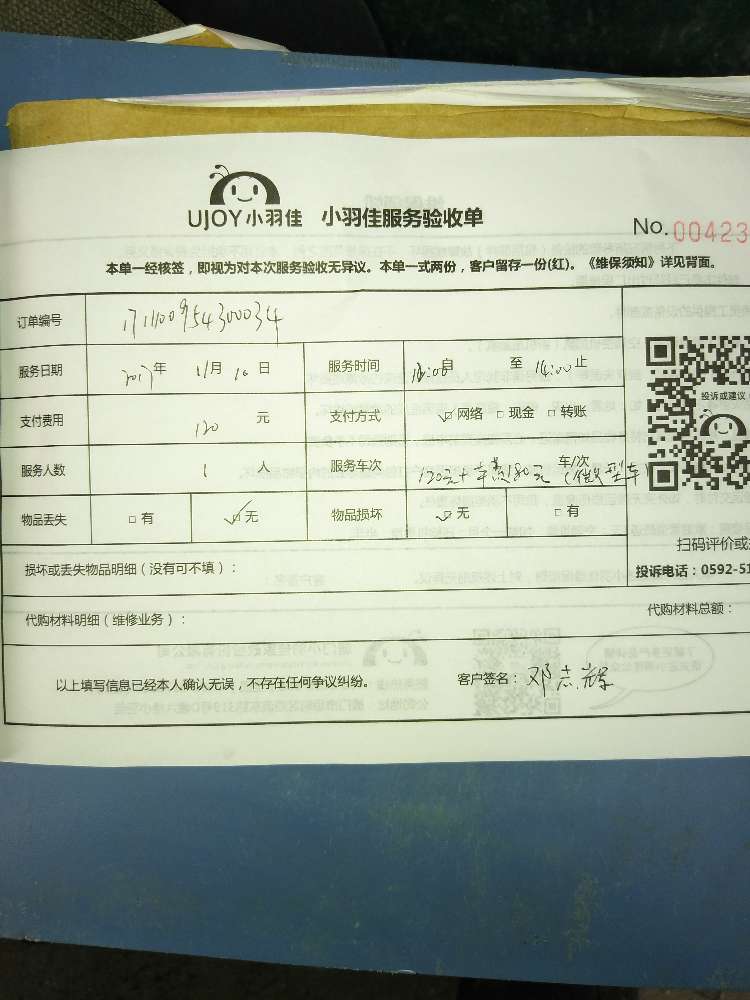 UJOY小羽佳 小羽佳服务验收单
No. 00423
本单一经核签，即视为对本次服务验收无异议。本单一式两份，客户留存一份(红)。《维保须知》详见背面。
订单编号
服务日期 2017年 11月 10日 服务时间 自 至 14:00止
支付费用 120 元 支付方式 ☑网络 □现金 □转账
服务人数 1 人 服务车次 120元+车费180元 车/次 (微型车)
物品丢失 □有 ☑无 物品损坏 ☑无 □有
投诉或建议
损坏或丢失物品明细（没有可不填）：
扫码评价或
投诉电话：0592-51
代购材料明细（维修业务）：
代购材料总额：
以上填写信息已经本人确认无误，不存在任何争议纠纷。
客户签名：邓志辉